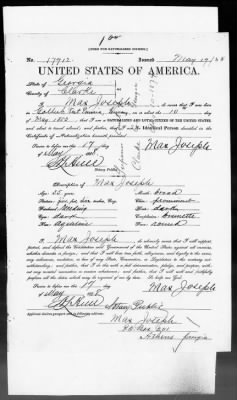 [FORM FOR NATURALIZED CITIZEN.]
No. 17912. Issued May 19/88
UNITED STATES OF AMERICA.
State of Georgia
County of Clarke
I, Max Joseph, do swear that I was born
in Germany, on the 10
of May 1833; that I am a NATURALIZED AND LOYAL CITIZEN OF THE UNITED STATES,
and about to travel abroad; and further, that I am the Identical Person described in the
Certificate of Naturalization
Sworn to before me this 17 day
of May 1888. Max Joseph
Notary Public.
Description of Max Joseph
Age: 55 years. Mouth: broad
Stature: five feet inches, Eng. Chin: prominent
Forehead: Medium Hair: dark
Eyes: dark Complexion: brunette
Nose: Aquiline Face: round
I, Max Joseph, do solemnly swear that I will support,
protect, and defend the Constitution and Government of the United States against all enemies,
whether domestic or foreign; and that I will bear true faith, allegiance, and loyalty to the same,
any ordinance, resolution, or law of any State, Convention, or Legislature to the contrary notwithstanding;
and further, that I do this with a full determination, pledge, and purpose, without
any mental reservation or evasion whatsoever; and further, that I will well and faithfully
perform all the duties which may be required of me by law. So help me God.
Sworn to before me this 17 day
of May 1888 Max Joseph
Notary Public
Applicant desires passport sent to following address:
Max Joseph
P.O. Box
Athens Georgia